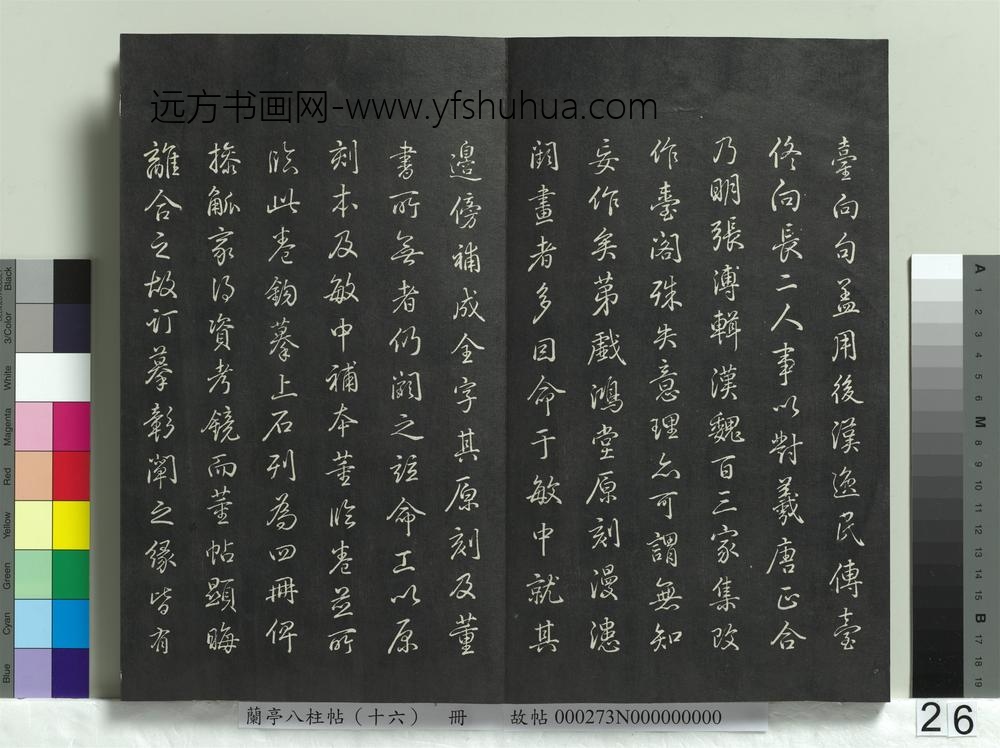 远方书画网-www.yfshuhua.com
臺向句盖用後漢逸民傳臺
佟向長二人事以對羲唐正合
乃明張溥輯漢魏百三家集改
作臺閣殊失意理亦可謂無知
妄作矣第戲鴻堂原刻漫漶
闕畫者多因命于敏中就其
邉傍補成全字其原刻及董
書所無者仍闕之竝命工以原
刻本及敏中補本董臨卷並所
臨此卷鉤摹上石列為四冊俾
操觚家得資考鏡而董帖顯晦
離合之故訂摹彰闡之緣皆有
蘭亭八柱帖（十六） 冊 故帖 000273N000000000
26
Black
3/Color
White
Magenta
Red
Yellow
Green
Cyan
Blue
A 1 2 3 4 5 6 M 8 9 10 11 12 13 14 15 B 17 18 19